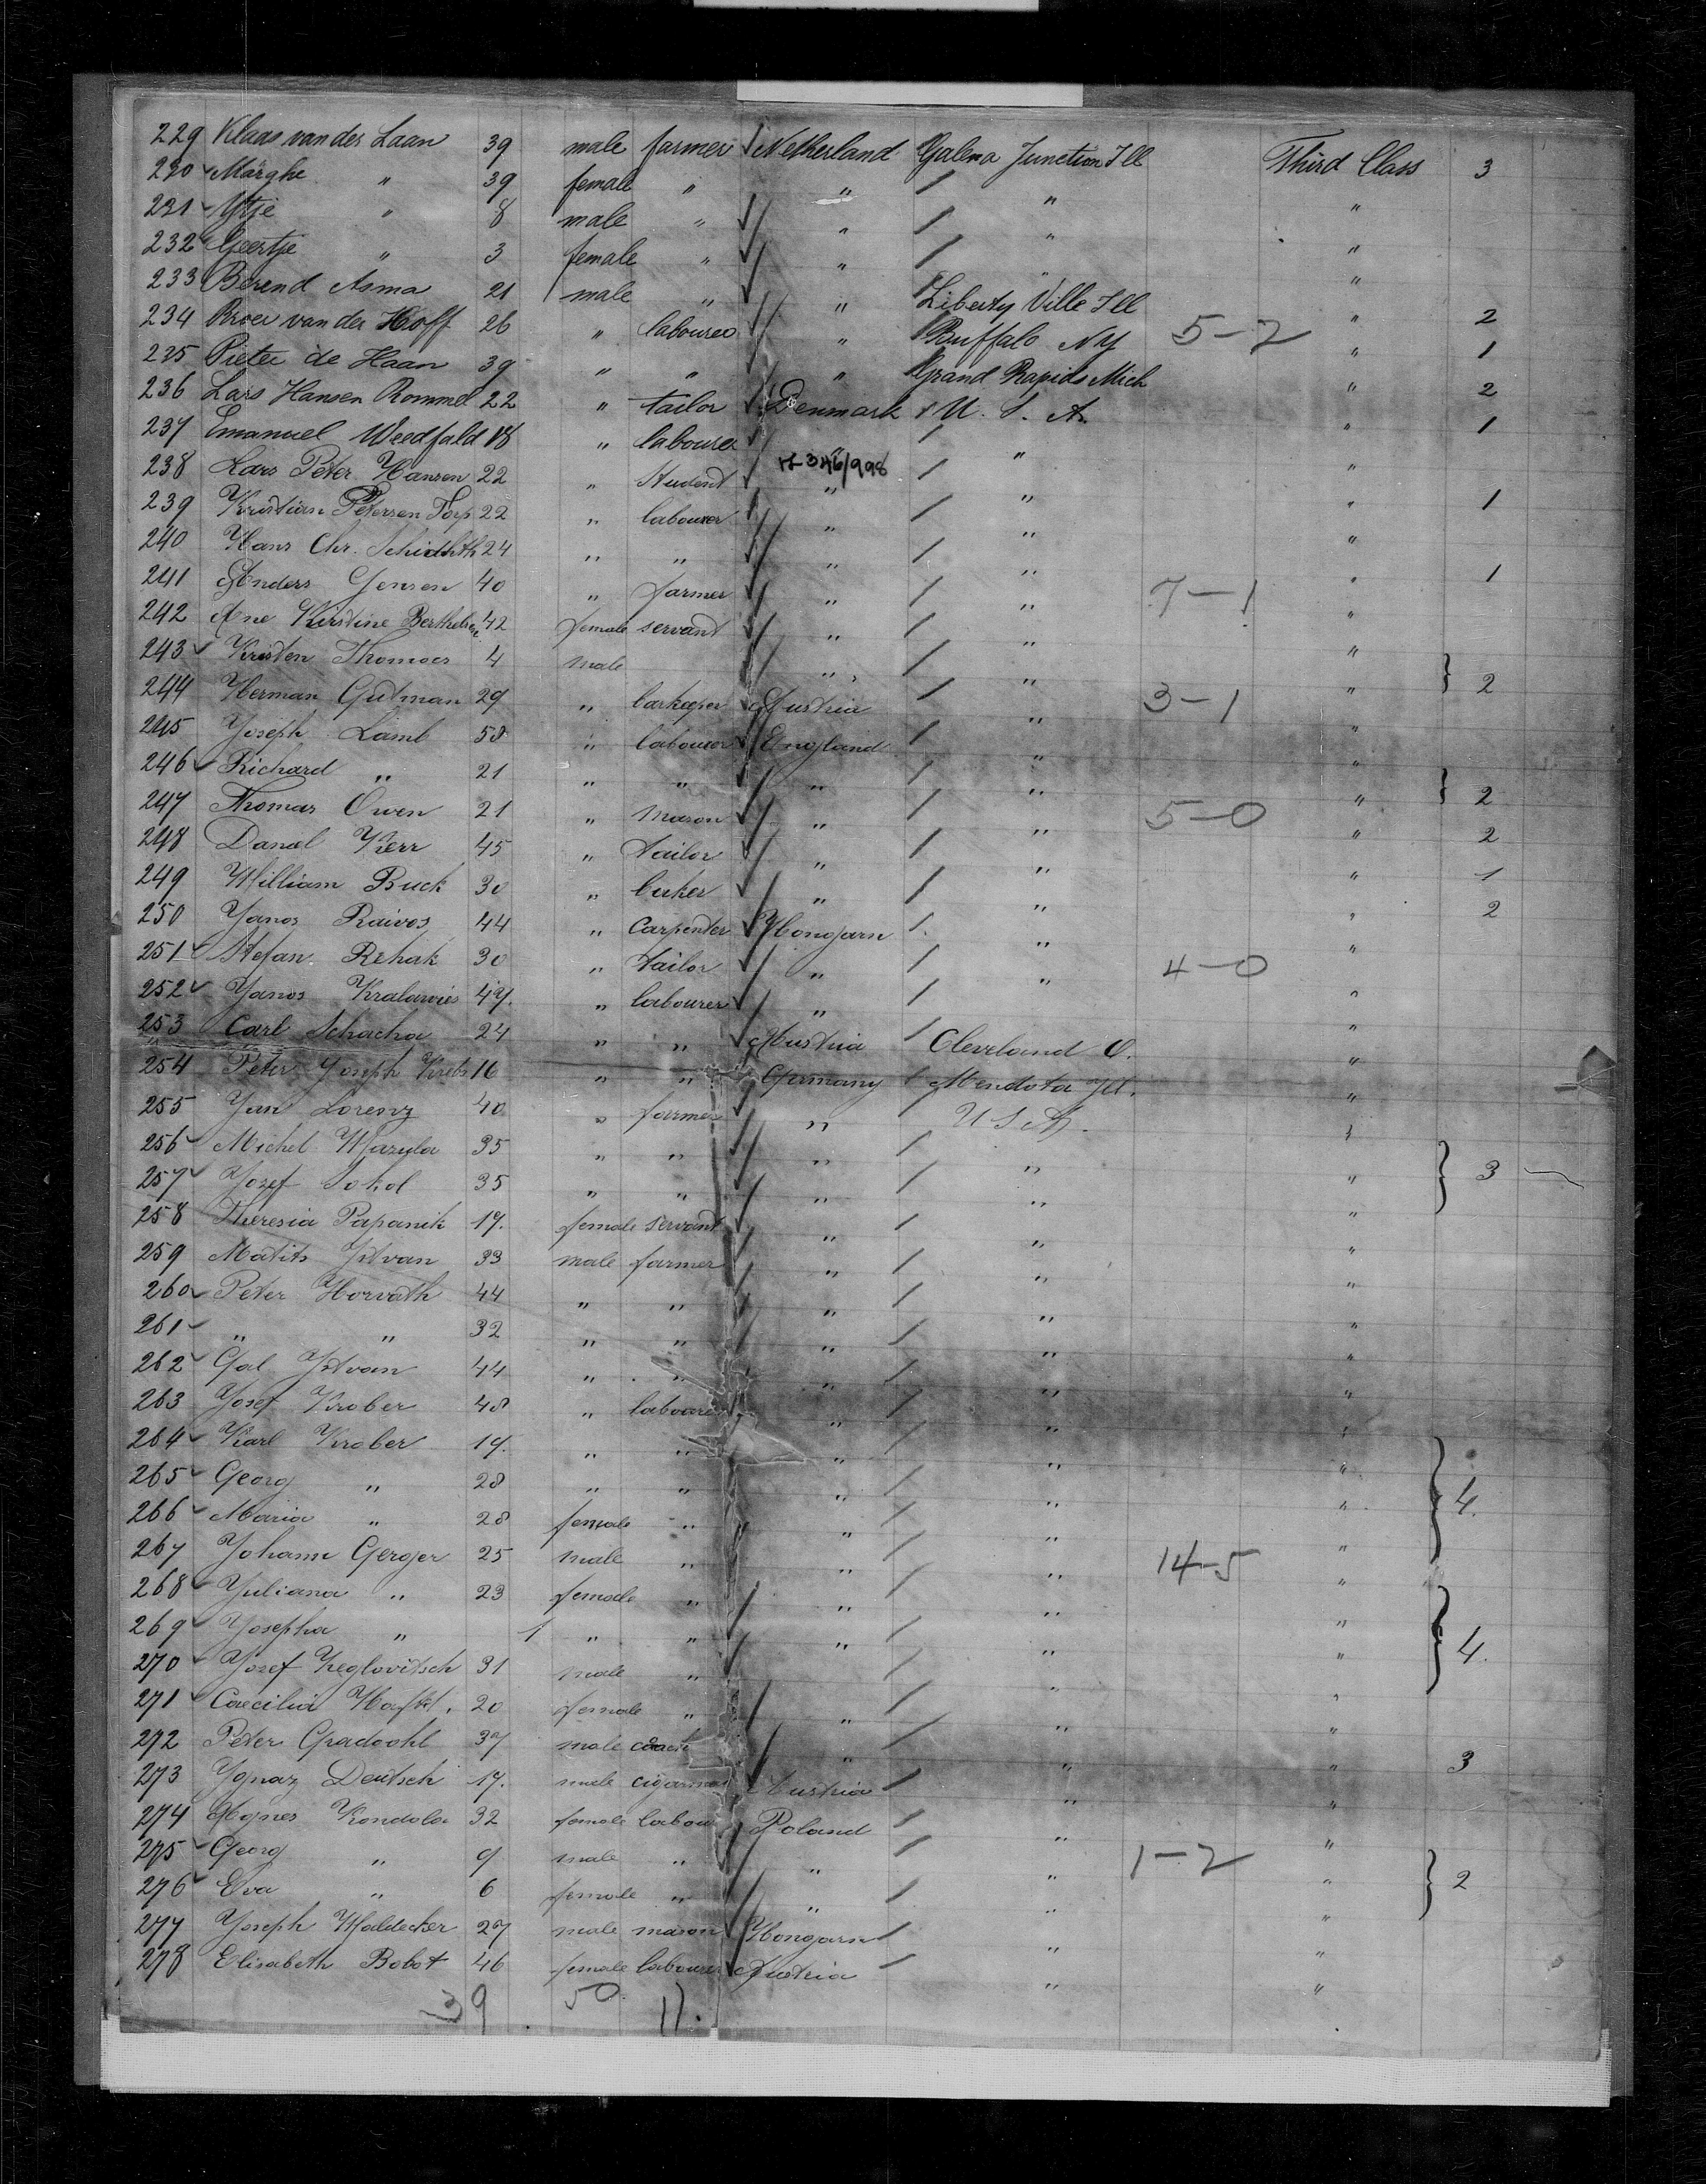 229 Klaas van der Laan 39 male farmer Netherland Galena Junction Ill Third Class 3
230 Marghe " 39 female " " " "
231 Ytje " 8 male " " " "
232 Geertje " 3 female " " " "
233 Berend Asma 21 male " " Liberty Ville Ill " 2
234 Roer van der Hoff 26 " labourer " Buffalo NY 5-2 " 1
235 Pieter de Haan 39 " " " Grand Rapids Mich " 2
236 Lars Hansen Rommel 22 " tailor Denmark U. S. A. " 1
237 Emanuel Weedfald 18 " labourer " "
238 Lars Peter Hansen 22 " Student " " " 1
239 Kristian Petersen Torp 22 " labourer " " "
240 Hans Chr. 24 " " " " " 1
241 Anders Jensen 40 " farmer " " 7-1 "
242 Ane Kirstine Berthelsen 42 female servant " " "
243 Kristen Thomoes 4 male " " " } 2
244 Herman Gutman 29 " barkeeper Austria " 3-1 "
245 Joseph Lamb 58 " labourer England " "
246 Richard " 21 " " " " " } 2
247 Thomas Owen 21 " mason " " 5-0 " 2
248 Daniel Kerr 45 " tailor " " " 1
249 William Buck 30 " " " " 2
250 Yanos Raivos 44 " carpenter Hongarn " "
251 Stefan Rehak 30 " tailor " " 4-0 "
252 Yanos 47. " labourer " "
253 Carl Schacha 24 " " Austria Cleveland O. "
254 Peter Joseph Krebs 16 " " Germany Mendota Ill. "
255 Jan Lorenz 40 " farmer " U S A. "
256 Michel 35 " " " " " } 3
257 Josef Sokol 35 " " " " "
258 Theresia Papanik 17. female servant " " "
259 Matits Istvan 33 male farmer " " "
260 Peter Horvath 44 " " " " "
261 " " 32 " " " " "
262 Gal Istvan 44 " " " " "
263 Josef Krober 48 " labourer " " "
264 Karl Krober 17. " " " " "
265 Georg " 28 " " " " " } 4.
266 Maria " 28 female " " " "
267 Johann Gerger 25 male " " " 14-5 "
268 Juliana " 23 female " " " "
269 Josepha " 1 " " " " " } 4.
270 Josef Keglovitsch 31 male " " "
271 Caecilia 20 female " " " "
272 Peter Gradwohl 37 male " " " 3
273 Ignaz Deutsch 17. male Austria " "
274 Agnes Kondola 32 female labour Poland " "
275 Georg " 9 male " " " 1-2 " } 2
276 Eva " 6 female " " " "
277 Joseph Waldecker 27 male mason Hongarn " "
278 Elisabeth Bobot 46 female labourer Austria " "
39 50 11.